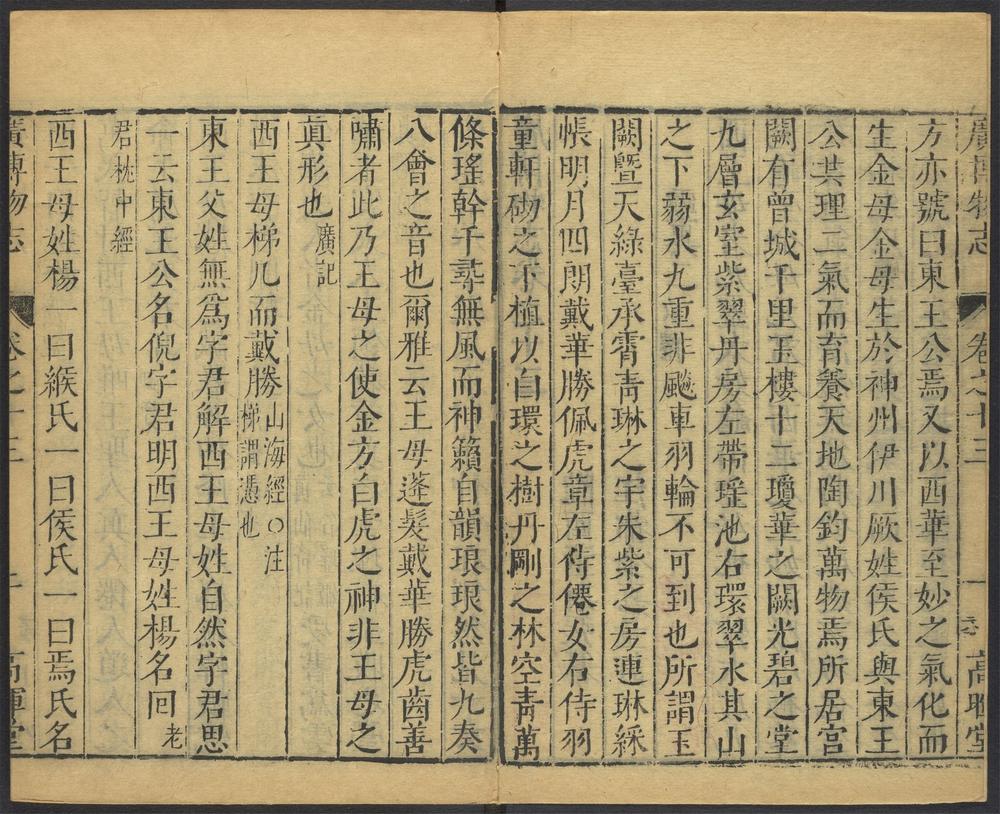 廣博物志 卷之十三 一 高暉堂
方亦號曰東王公焉又以西華至妙之氣化而
生金母金母生於神州伊川厥姓侯氏與東王
公共理二氣而育養天地陶鈞萬物焉所居宮
闕有曾城千里玉樓十二瓊華之闕光碧之堂
九層玄室紫翠丹房左帶瑤池右環翠水其山
之下弱水九重非飈車羽輪不可到也所謂玉
闕暨天綠臺承霄靑琳之宇朱紫之房連琳綵
帳明月四朗戴華勝佩虎章左侍僊女右侍羽
童軒砌之下植以自環之樹丹剛之林空靑萬
條瑤幹千尋無風而神籟自韻琅琅然皆九奏
八會之音也爾雅云王母蓬髮戴華勝虎齒善
嘯者此乃王母之使金方白虎之神非王母之
眞形也廣記
西王母梯几而戴勝山海經○注梯謂憑也
東王父姓無爲字君解西王母姓自然字君思
一云東王公名倪字君明西王母姓楊名回老
君枕中經
西王母姓楊一曰緱氏一曰侯氏一曰焉氏名
廣博物志 卷之十三 二 高暉堂